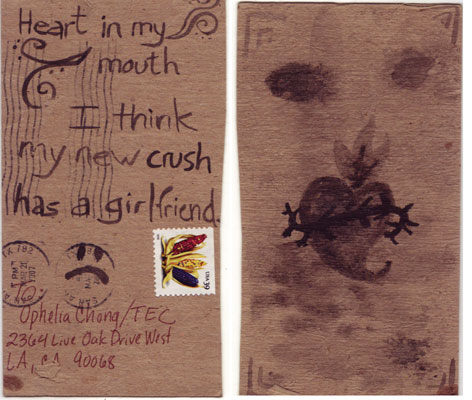 Heart in my
mouth
I think
my new crush
has a girlfriend.
USA 39
Ophelia Chong/TEC
2364 Live Oak Drive West
LA, CA 90068